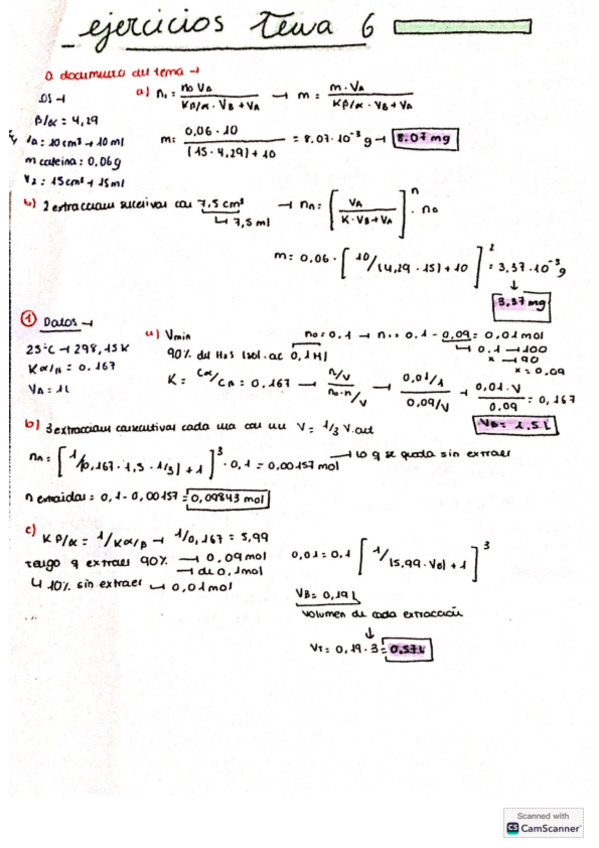 ejercicios Tema 6
a documento del tema →
DS →
β/α = 4,29
VA = 10 cm³ → 10 ml
m cafeina = 0,06 g
V2 = 15 cm³ → 15 ml
a) n₁ = no VA / Kβ/α · VB + VA → m = m · VA / Kβ/α · VB + VA
m = 0,06 · 10 / (15 · 4,29) + 10 = 8,07 · 10⁻³ g → 8,07 mg
b) 2 extracciones sucesivas con 7,5 cm³ → nn = [VA / K · VB + VA]ⁿ · no
↳ 7,5 ml
m = 0,06 · [10/(4,29 · 15) + 10]² = 3,37 · 10⁻³ g
↓
3,37 mg
① Datos →
25°C → 298,15 K
Kα/β = 0,167
VA = 1L
a) Vmin
90% del H2S 1 sol. ac 0,1 M
no = 0,1 → n = 0,1 - 0,09 = 0,01 mol
↳ 0,1 → 100
x → 90
x = 0,09
K = Cα/Cβ = 0,167 → n/V / no-n/V → 0,01/1 / 0,09/V → 0,01 · V / 0,09 = 0,167
VB = 1,5 L
b) 3 extracciones consecutivas cada una con un V = 1/3 V.
nn = [1/0,167 · 1,5 · 1/3) + 1]³ · 0,1 = 0,00157 mol → lo q se queda sin extraer
n extraidos = 0,1 - 0,00157 = 0,09843 mol
c) Kβ/α = 1/Kα/β → 1/0,167 = 5,99
tengo q extraer 90% → 0,09 mol
→ de 0,1 mol
↳ 10% sin extraer → 0,01 mol
0,01 = 0,1 [1/(5,99 · VB) + 1]³
VB = 0,19 L
volumen de cada extracción
↓
VT = 0,19 · 3 = 0,57 L
Scanned with
CS CamScanner